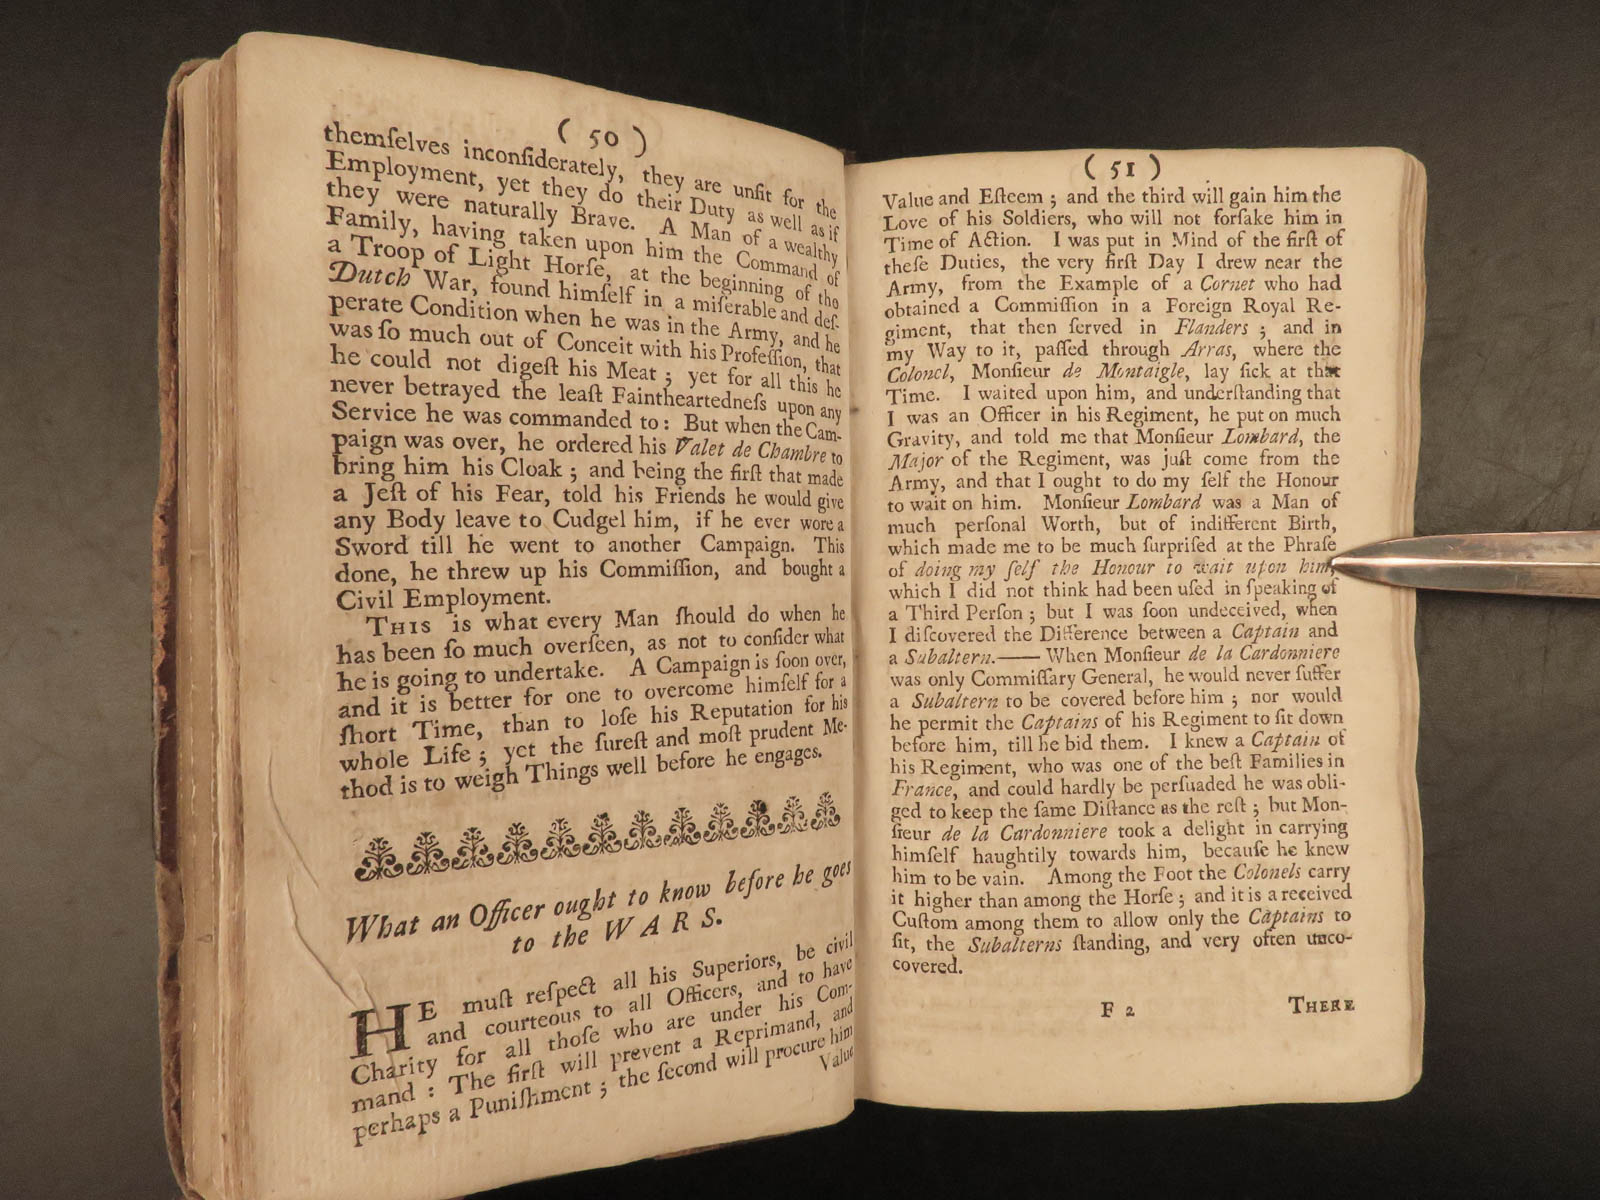 ( 50 )
themſelves inconſiderately, they are unfit for the
Employment, yet they do their Duty as well as if
they were naturally Brave. A Man of a wealthy
Family, having taken upon him the Command of
a Troop of Light Horſe, at the beginning of the
Dutch War, found himſelf in a miſerable and deſ-
perate Condition when he was in the Army, and he
was ſo much out of Conceit with his Profeſſion, that
he could not digeſt his Meat ; yet for all this he
never betrayed the leaſt Faintheartedneſs upon any
Service he was commanded to : But when the Cam-
paign was over, he ordered his Valet de Chambre to
bring him his Cloak ; and being the firſt that made
a Jeſt of his Fear, told his Friends he would give
any Body leave to Cudgel him, if he ever wore a
Sword till he went to another Campaign. This
done, he threw up his Commiſſion, and bought a
Civil Employment.
THIS is what every Man ſhould do when he
has been ſo much overſeen, as not to conſider what
he is going to undertake. A Campaign is ſoon over,
and it is better for one to overcome himſelf for a
ſhort Time, than to loſe his Reputation for his
whole Life ; yet the ſureſt and moſt prudent Me-
thod is to weigh Things well before he engages.
What an Officer ought to know before he goes
to the WARS.
HE muſt reſpect all his Superiors, be civil
and courteous to all Officers, and to have
Charity for all thoſe who are under his Com-
mand : The firſt will prevent a Reprimand, and
perhaps a Puniſhment ; the ſecond will procure him
Value
( 51 )
Value and Eſteem ; and the third will gain him the
Love of his Soldiers, who will not forſake him in
Time of Action. I was put in Mind of the firſt of
theſe Duties, the very firſt Day I drew near the
Army, from the Example of a Cornet who had
obtained a Commiſſion in a Foreign Royal Re-
giment, that then ſerved in Flanders ; and in
my Way to it, paſſed through Arras, where the
Colonel, Monſieur de Montaigle, lay ſick at that
Time. I waited upon him, and underſtanding that
I was an Officer in his Regiment, he put on much
Gravity, and told me that Monſieur Lombard, the
Major of the Regiment, was juſt come from the
Army, and that I ought to do my ſelf the Honour
to wait on him. Monſieur Lombard was a Man of
much perſonal Worth, but of indifferent Birth,
which made me to be much ſurpriſed at the Phraſe
of doing my ſelf the Honour to wait upon him,
which I did not think had been uſed in ſpeaking of
a Third Perſon ; but I was ſoon undeceived, when
I diſcovered the Difference between a Captain and
a Subaltern.—— When Monſieur de la Cardonniere
was only Commiſſary General, he would never ſuffer
a Subaltern to be covered before him ; nor would
he permit the Captains of his Regiment to ſit down
before him, till he bid them. I knew a Captain of
his Regiment, who was one of the beſt Families in
France, and could hardly be perſuaded he was obli-
ged to keep the ſame Diſtance as the reſt ; but Mon-
ſieur de la Cardonniere took a delight in carrying
himſelf haughtily towards him, becauſe he knew
him to be vain. Among the Foot the Colonels carry
it higher than among the Horſe ; and it is a received
Cuſtom among them to allow only the Captains to
ſit, the Subalterns ſtanding, and very often unco-
covered.
F 2 THERE